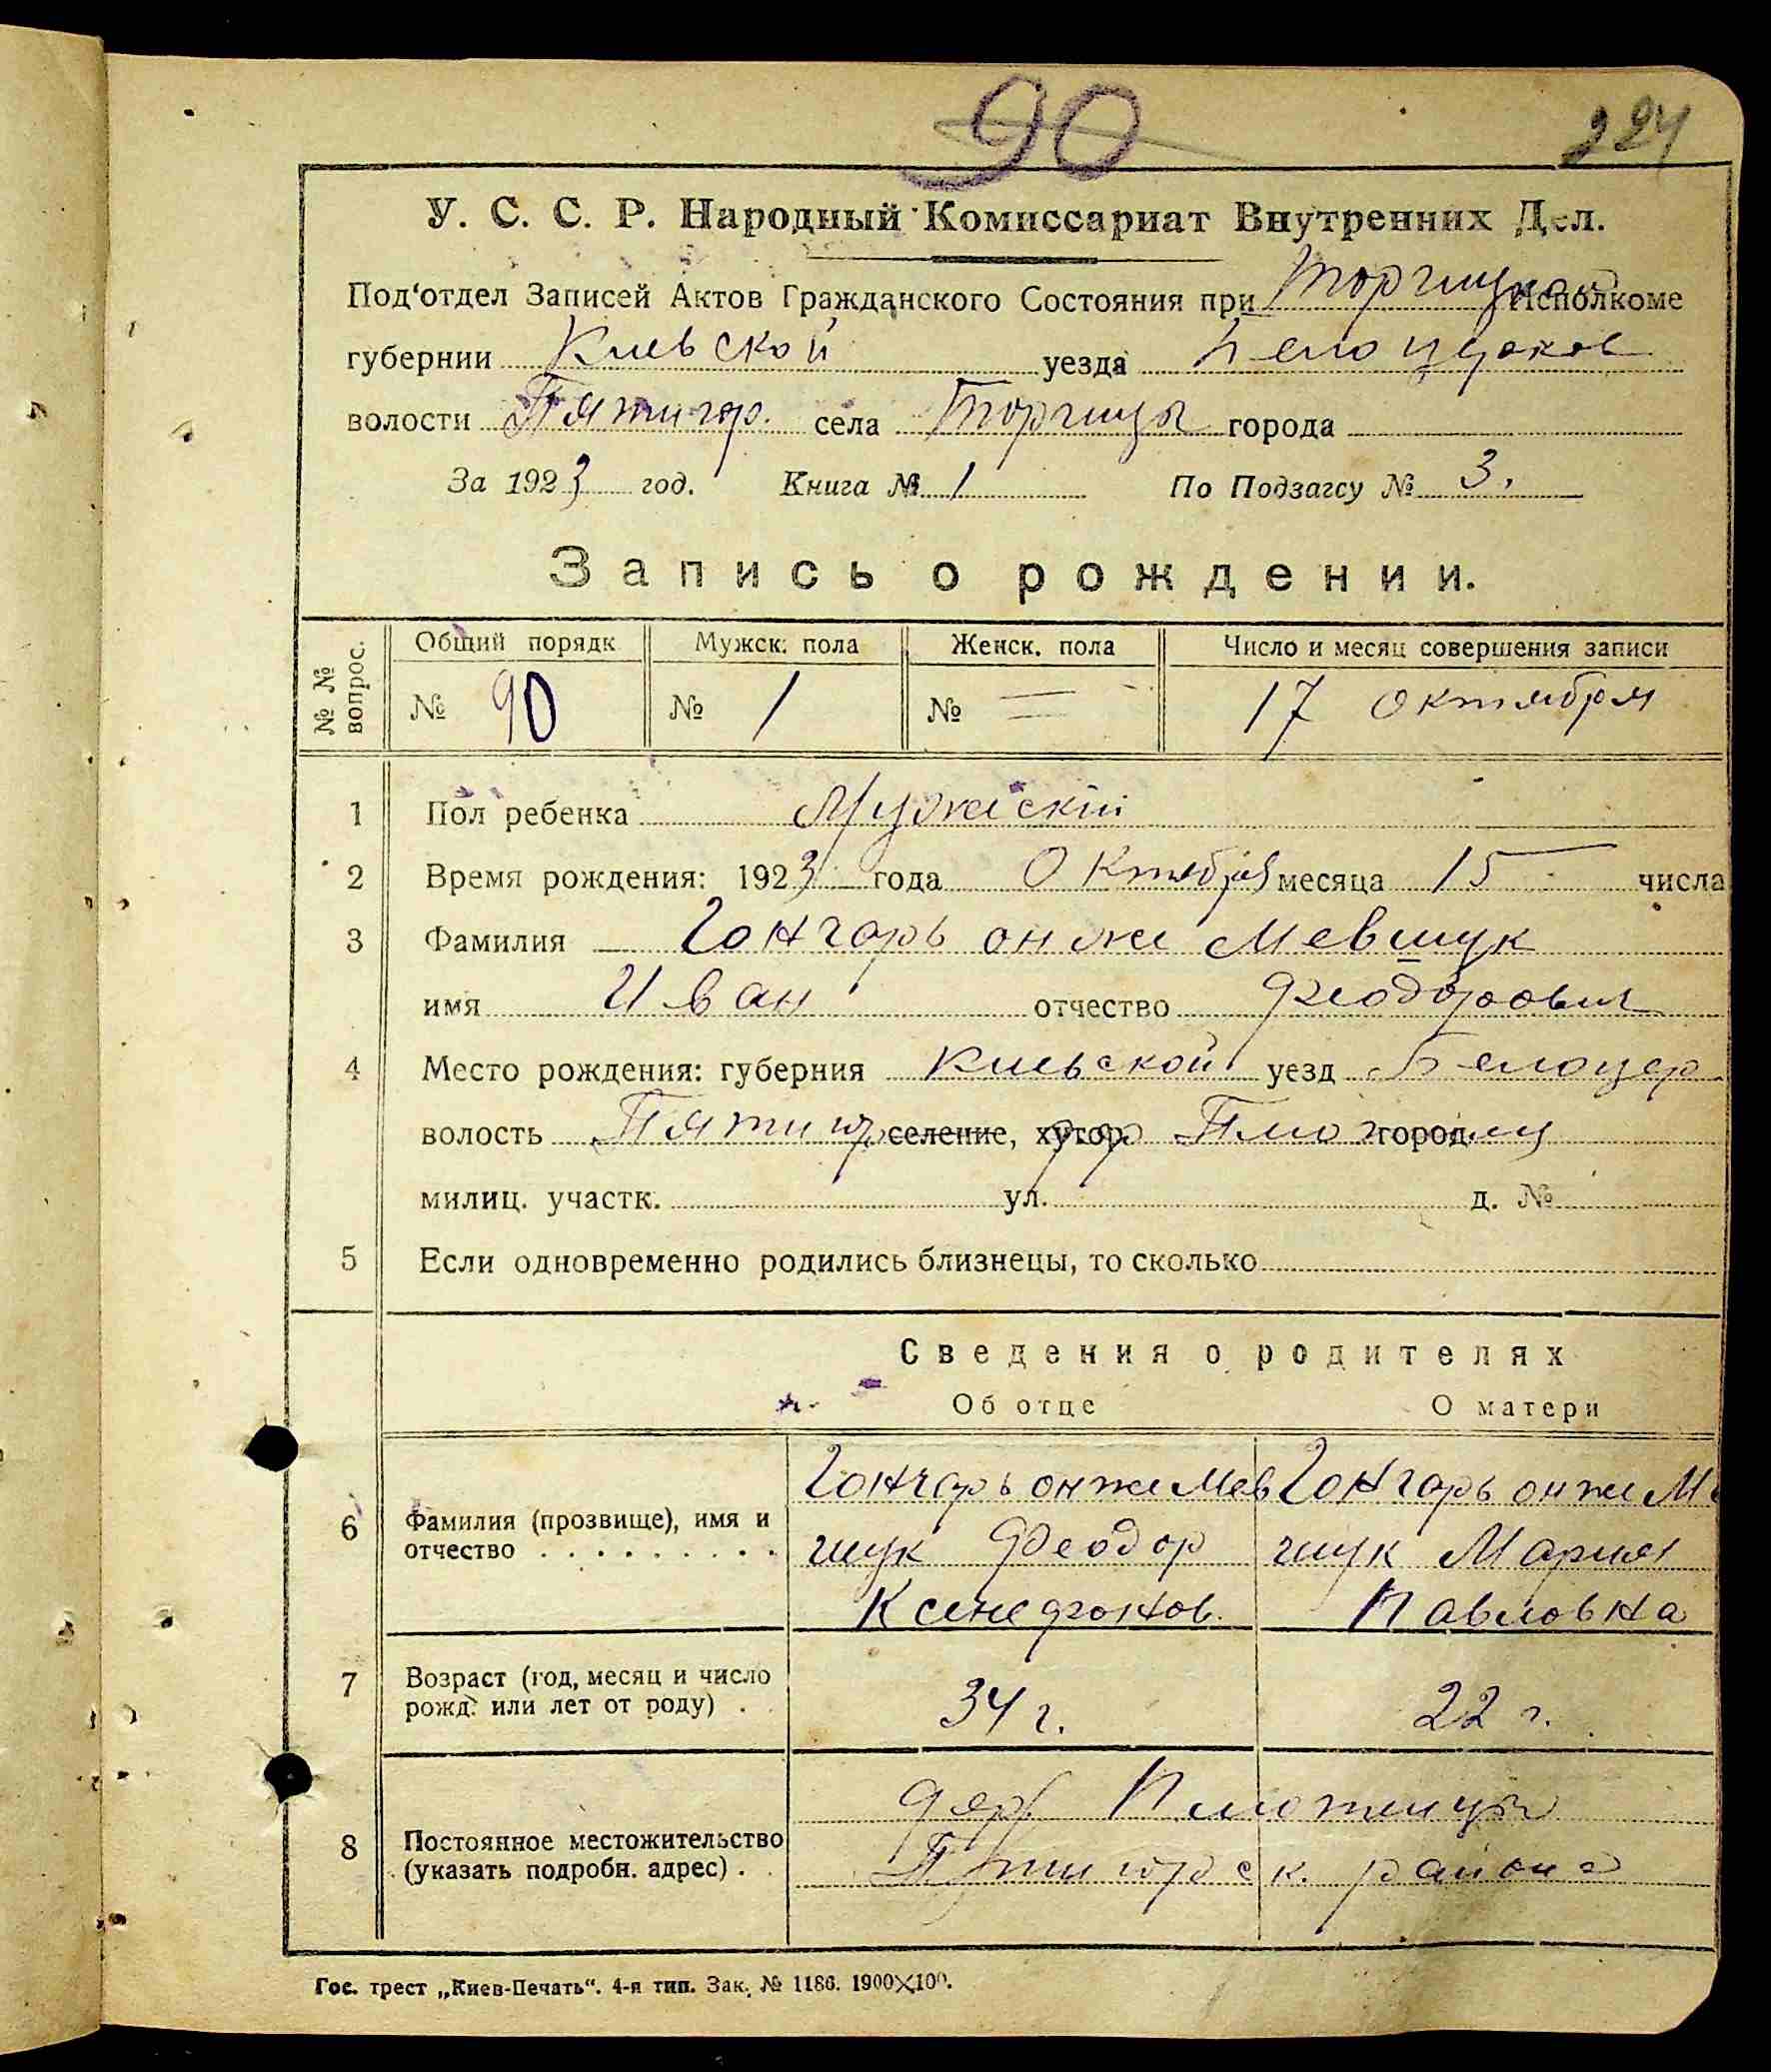 90
224
У. С. С. Р. Народный Комиссариат Внутренних Дел.
Под‘отдел Записей Актов Гражданского Состояния при Торчицком Исполкоме
губернии Киевской уезда Белоцерков
волости Пятигор. села Торчицы города
За 1923 год. Книга № 1 По Подзагсу № 3.
Запись о рождении.
№ № вопрос.
Общий порядк Мужск. пола Женск. пола Число и месяц совершения записи
№ 90 № 1 № = 17 Октября
1 Пол ребенка Мужеский
2 Время рождения: 1923 года Октября месяца 15 числа
3 Фамилия Гончарь он же Мевшук
имя Иван отчество Феодорович
4 Место рождения: губерния Киевской уезд Белоцер
волость Пятигор селение, хутор. город
милиц. участк. ул. д. №
5 Если одновременно родились близнецы, то сколько
Сведения о родителях
Об отце О матери
Гончарь он же Мев Гончарь он же М
6 Фамилия (прозвище), имя и отчество . . . . . . . . . шук Феодор шук Мария
Ксенофонов. Павловна
7 Возраст (год, месяц и число рожд. или лет от роду) . 34 г. 22 г.
дер.
8 Постоянное местожительство (указать подробн. адрес) . Пятигорск. района
Гос. трест „Киев-Печать“. 4-я тип. Зак. № 1186. 1900×100.